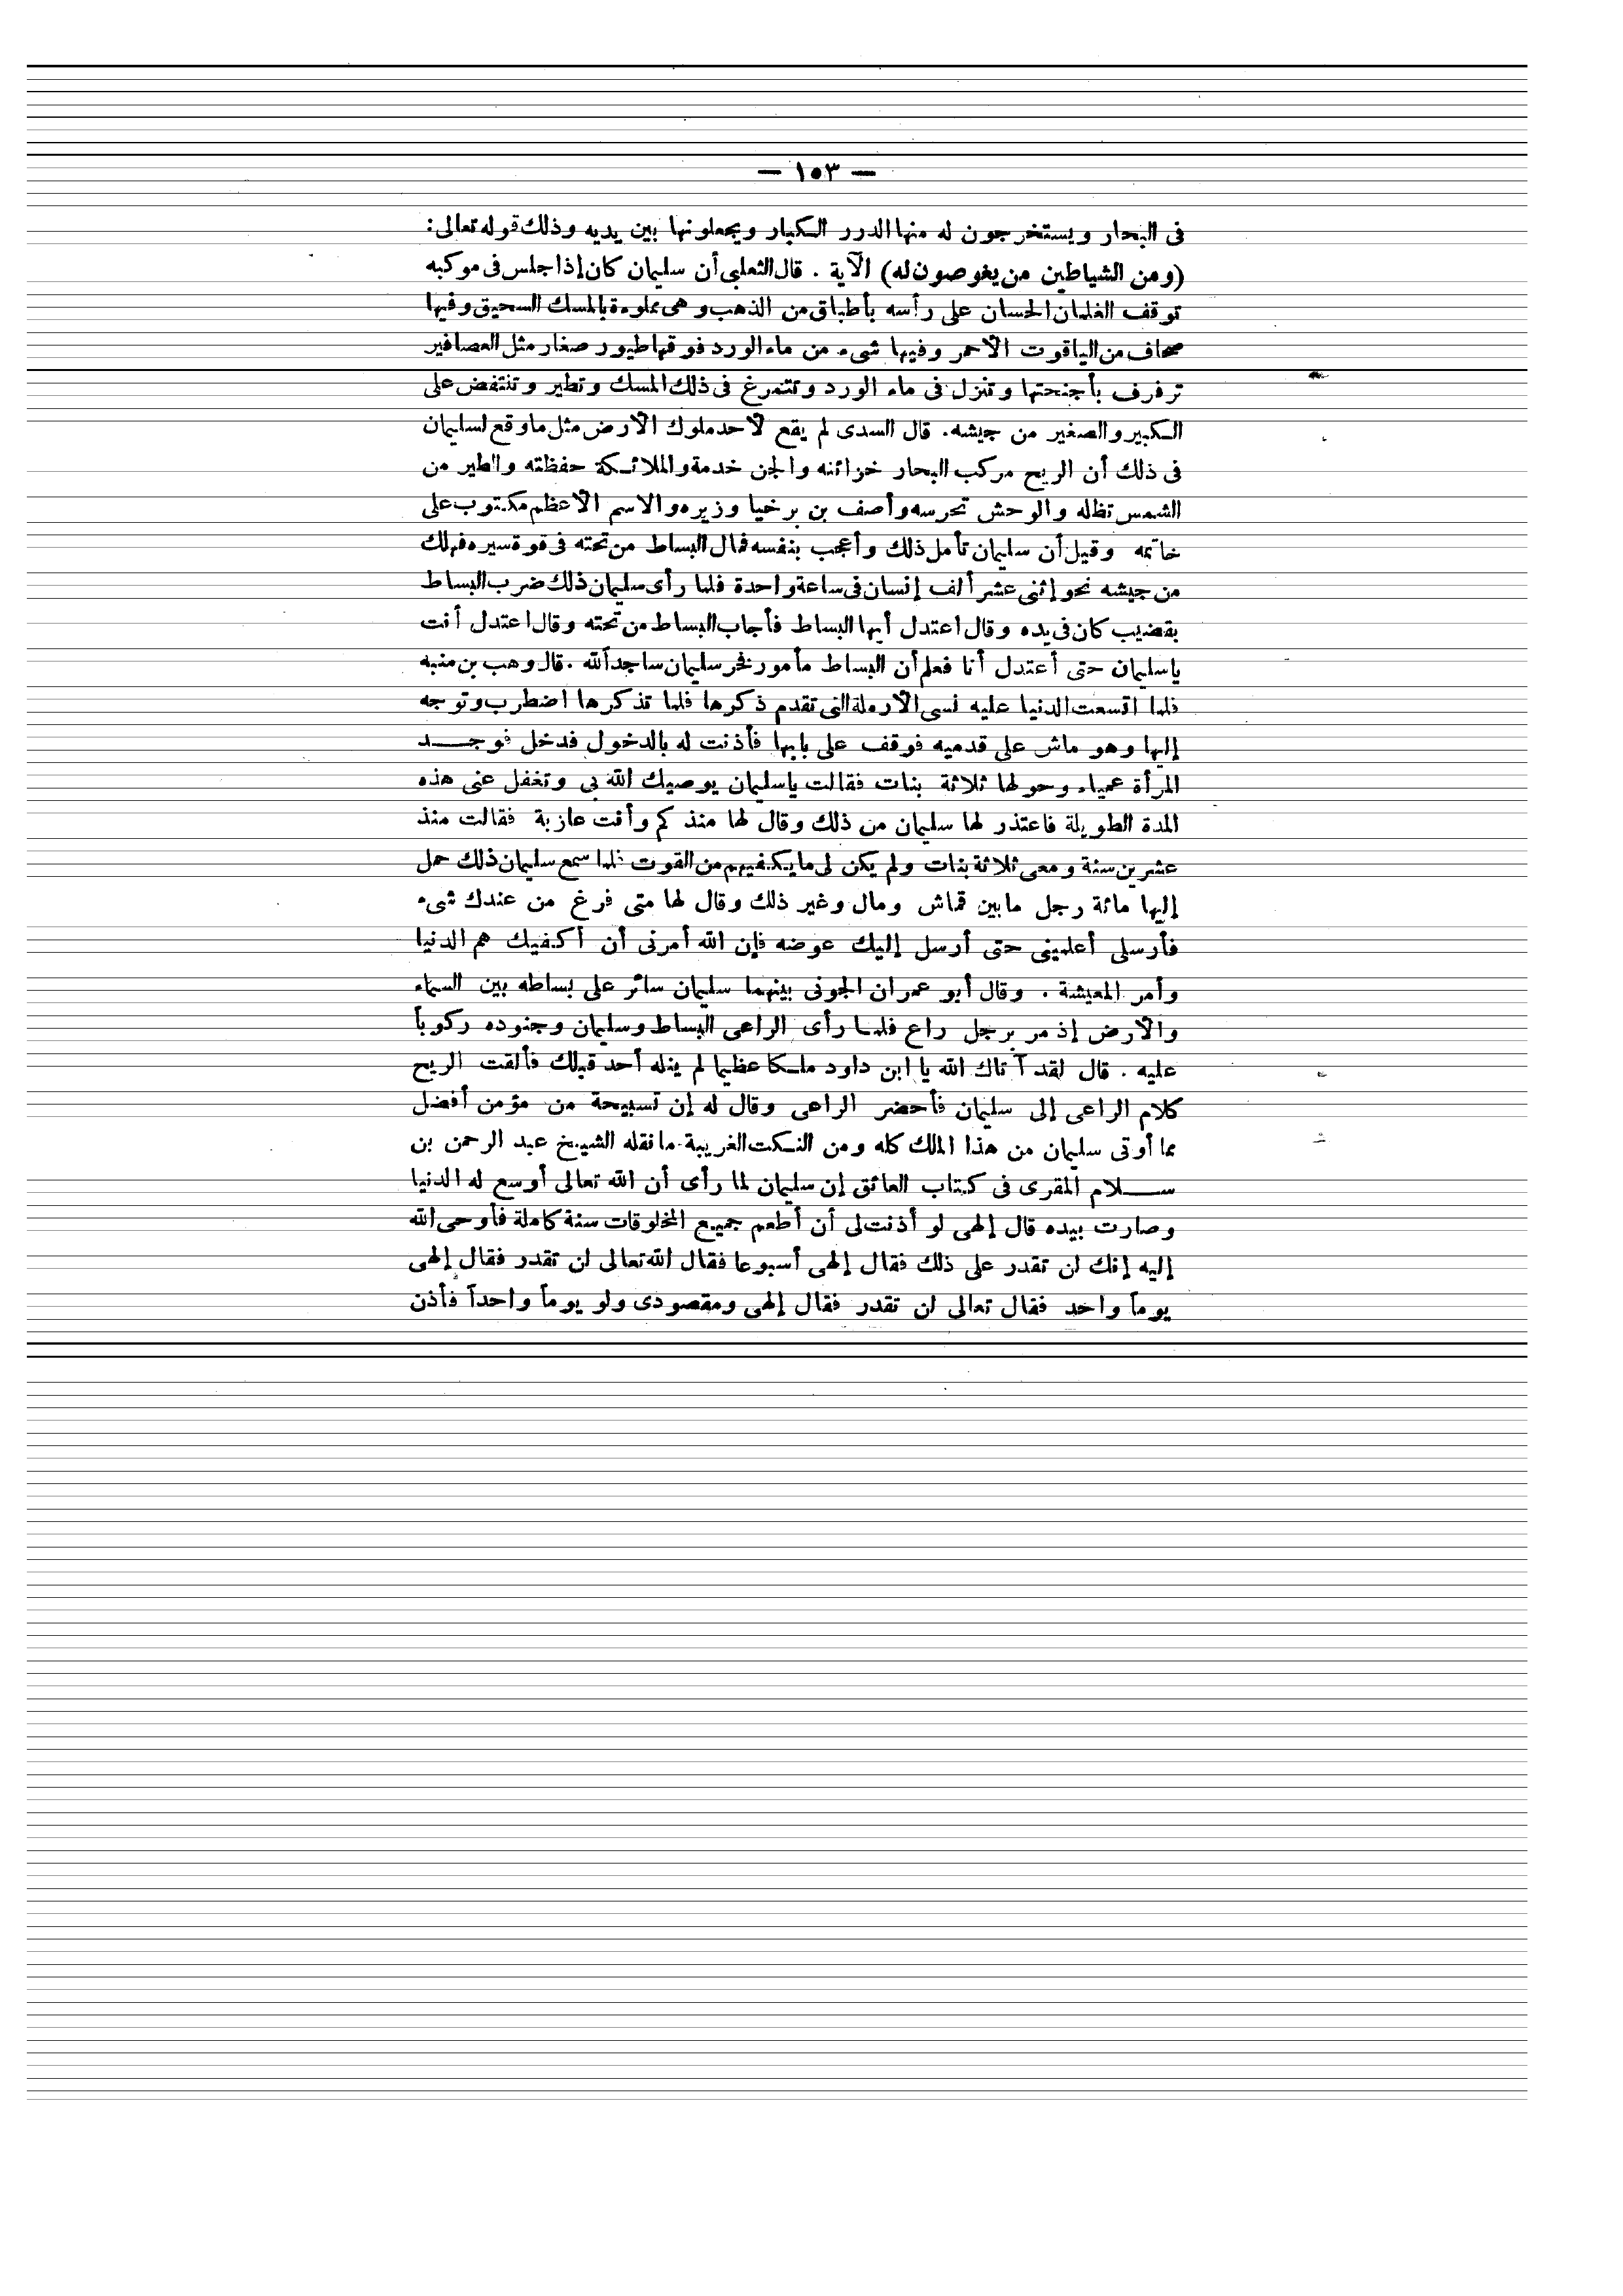 — ١٥٣ —
فى البحار ويستخرجون له منها الدرر الكبار ويجعلونها بين يديه وذلك قوله تعالى:
(ومن الشياطين من يغوصون له) الآية . قال الثعلبى أن سليمان كان إذا جلس فى موكبه
توقف الغلمان الحسان على رأسه بأطباق من الذهب وهى مملوءة بالمسك السحيق وفيها
صحاف من الياقوت الأحمر وفيها شىء من ماء الورد فوقها طيور صغار مثل العصافير
ترفرف بأجنحتها وتنزل فى ماء الورد وتتمرغ فى ذلك المسك وتطير وتنتفض على
الكبير والصغير من جيشه. قال السدى لم يقع لأحد ملوك الأرض مثل ما وقع لسليمان
فى ذلك أن الريح مركب البحار خزائنه والجن خدمة والملائكة حفظته والطير من
الشمس تظله والوحش تحرسه وأصف بن برخيا وزيره والاسم الأعظم مكتوب على
خاتمه وقيل أن سليمان تأمل ذلك وأعجب بنفسه فمال البساط من تحته فى قوة سيره فهلك
من جيشه نحو إثنى عشر ألف إنسان فى ساعة واحدة فلما رأى سليمان ذلك ضرب البساط
بقضيب كان فى يده وقال اعتدل أيها البساط فأجاب البساط من تحته وقال اعتدل أنت
ياسليمان حتى أعتدل أنا فعلم أن البساط مأمور فخر سليمان ساجداً لله . قال وهب بن منبه
فلما اتسعت الدنيا عليه نسى الأرملة التى تقدم ذكرها فلما تذكرها اضطرب وتوجه
إليها وهو ماش على قدميه فوقف على بابها فأذنت له بالدخول فدخل فوجد
المرأة عمياء وحولها ثلاثة بنات فقالت ياسليمان يوصيك الله بى وتغفل عنى هذه
المدة الطويلة فاعتذر لها سليمان من ذلك وقال لها منذ كم وأنت عازبة فقالت منذ
عشرين سنة ومعى ثلاثة بنات ولم يكن لى مايكفيهم من القوت فلما سمع سليمان ذلك حمل
إليها مائة رجل مابين قماش ومال وغير ذلك وقال لها متى فرغ من عندك شىء
فأرسلى أعلمينى حتى أرسل إليك عوضه فإن الله أمرنى أن أكفيك هم الدنيا
وأمر المعيشة . وقال أبو عمران الجونى بينهما سليمان سائر على بساطه بين السماء
والأرض إذ مر برجل راع فلما رأى الراعى البساط وسليمان وجنوده ركوباً
عليه . قال لقد آتاك الله يا ابن داود ملكا عظيما لم ينله أحد قبلك فألقت الريح
كلام الراعى إلى سليمان فأحضر الراعى وقال له إن تسبيحة من مؤمن أفضل
مما أوتى سليمان من هذا الملك كله ومن النكت الغريبة مانقله الشيخ عبد الرحمن بن
سلام المقرى فى كتاب العائق إن سليمان لما رأى أن الله تعالى أوسع له الدنيا
وصارت بيده قال إلهى لو أذنت لى أن أطعم جميع المخلوقات سنة كاملة فأوحى الله
إليه إنك لن تقدر على ذلك فقال إلهى أسبوعا فقال الله تعالى لن تقدر فقال إلهى
يوماً واحد فقال تعالى لن تقدر فقال إلهى ومقصودى ولو يوماً واحداً فأذن